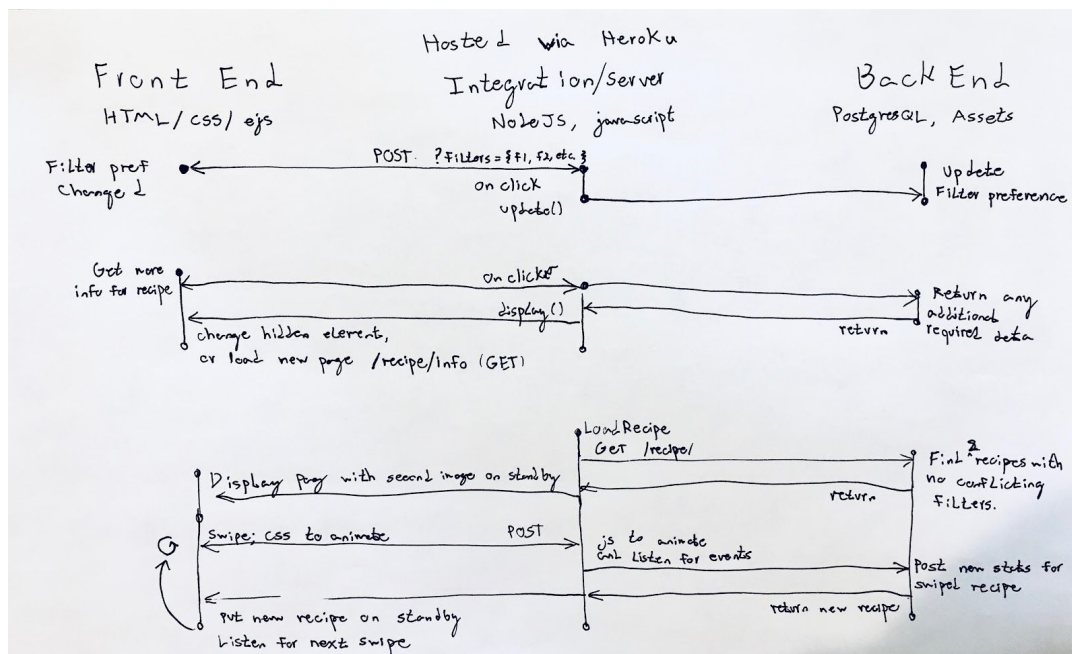 Hosted via Heroku
Front End
Integration/Server
Back End
HTML/CSS/ejs
NodeJS, javascript
PostgresQL, Assets
Filter pref
Changed
POST. ?filters = {f1, f2, etc. }
on click
update()
Update
Filter preference
Get more
info for recipe
on click
display()
change hidden element,
or load new page /recipe/info (GET)
Return any
additional
required data
return
Load Recipe
GET /recipe/
Find 2 recipes with
no conflicting
filters.
return
Display page with second image on standby
Swipe; css to animate
POST
js to animate
and Listen for events
Post new stats for
swiped recipe
return new recipe
Put new recipe on standby
Listen for next swipe